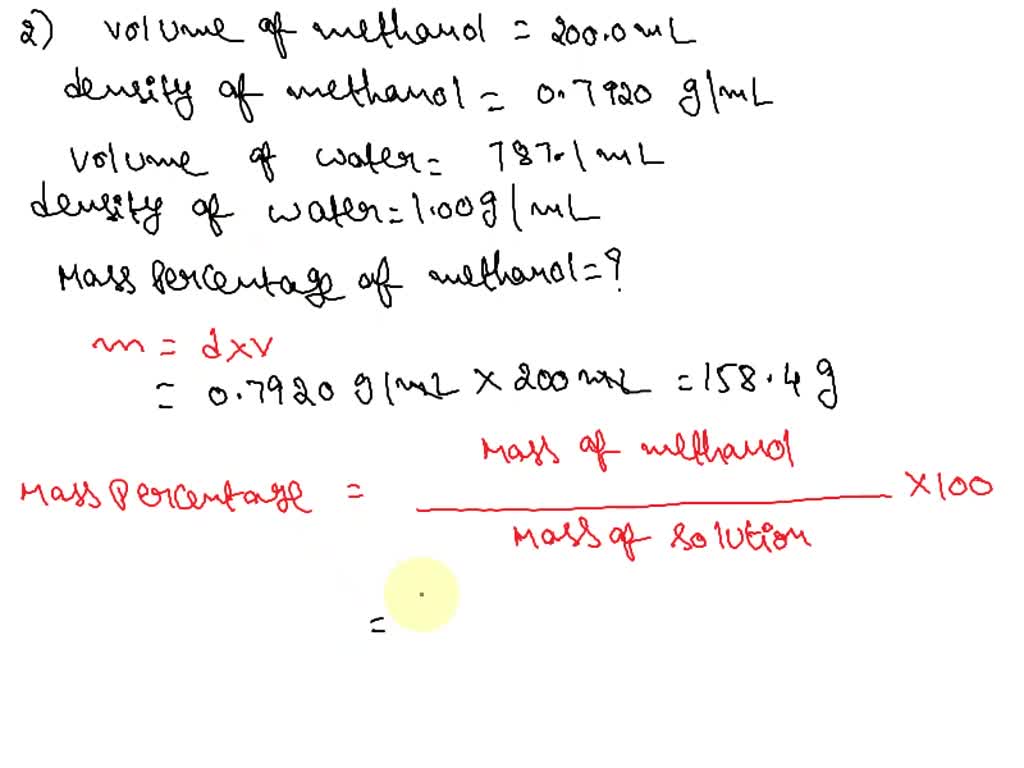 2) volume of methanol = 200.0 mL
density of methanol = 0.7920 g/mL
volume of water = 787.1 mL
density of water = 1.00 g/mL
Mass Percentage of methanol = ?
m = d×v
= 0.7920 g/mL × 200 mL = 158.4 g
Mass of methanol
Mass Percentage = × 100
Mass of solution
=